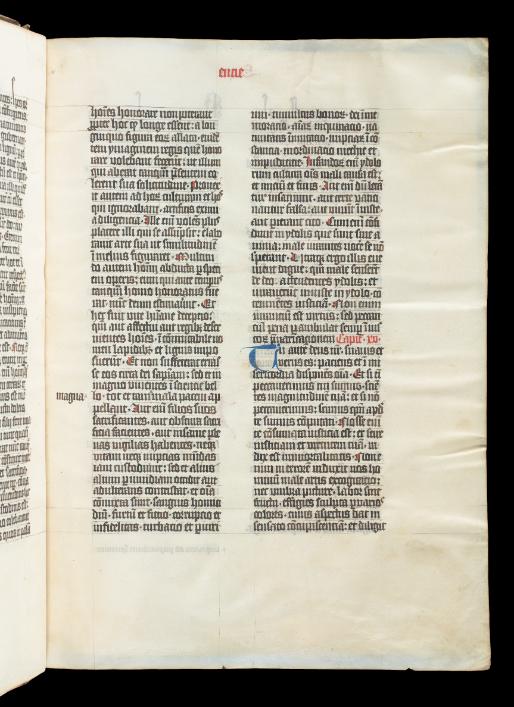 encie
hoīes honorare non poterant
ꝓpter hoc qͥ longe essent: a lon
ginquo figura eoꝝ allata: euidē
tem ymaginem regis quē hono
rare volebant fecerūt: ut illum
qui aberat tanquā p̄sentem co
lerent sua
it autem ad hoꝝ culturam et hos
qui ignorabant: artificis eximia
diligencia. Ille em̄ volēs plus
placere illi qui se assūpsit: elabo
rauit arte sua ut similitudinē
in melius figuraret. Multitu
do autem hoīm abducta ꝑ speciē
operis: eum qui ante tempus
tanquā homo honoratus fue
rat: nūc deum estimauerūt. Et
hec fuit vite hūane decepcio:
qm̄ aut affectui aut regibꝫ deser
uientes hoīes: īcōmunicabile no
men lapidibꝫ et lignis impo
suerūt. Et non suffecerat errasse
eos circa dei sapiam: sed et in
magno viuentes īsciencie bel
lo: tot et tam mala pacem ap
magna
pellant. Aut em̄ filios suos
sacrificantes: aut obscura sacri
ficia facientes: aut insanie ple
nas vigilias habentes: neqꝫ
vitam neqꝫ nupcias mūdas
iam custodiunt: sed et alius
alium ꝑ inuidiam occidit aut
adulterans contristat: et oīa
cōmixta sunt: sanguis homici
diū: furtū et fictio: corrupcio et
infidelitas: turbacio et periuri
um: tumultus bonoꝝ: dei īme
moracio: aīaꝝ inquinacio: na
tiuitatis īmutacio: nupciaꝝ īcō
stancia: inordinacio mechie et
impudicicie. Infandoꝝ em̄ ydolo
rum cultura oīs mali causa est:
et iniciū et finis. Aut em̄ dū letā
tur insaniunt: aut certe vatici
nantur falsa: aut viuūt iniuste:
aut peierant cito. Dum em̄ cōfi
dunt in ydolis que sine aīa
sunt: male iurantes noceri se nō
sperant. Utraqꝫ ergo illis eue
nient digne: qm̄ male senserūt
de deo attendentes ydolis: et
iurauerūt iniuste in ydolo cō
tempnētes iusticiā. Non enim
iurancium est virtus: sed peccan
ciū pena ꝑambulat semꝑ īiusto
ꝝ p̄uaricacionem Capīᵐ xv.
Tu aut deus nr̄: suauis et
verus es: paciens et ī mi
sericordia disponēs oīa. Et si ī
peccauerimus tui sumus: sciē
tes magnitudinē tuā: et si nō
peccauerimus: scimus qm̄ apd̄
te sumus cōputati. Nosse em̄
te cōsumata iusticia est: et scire
iusticiam et virtutem tuā ra
dix est immortalitatis. Non
enim in errorē induxit nos ho
minū male artis excogitacio:
nec umbra picture: labor sine
fructu: effigies sculpta ꝑ varios
colores: cuius aspectus dat in
sensato cōcupiscenciā: et diligit